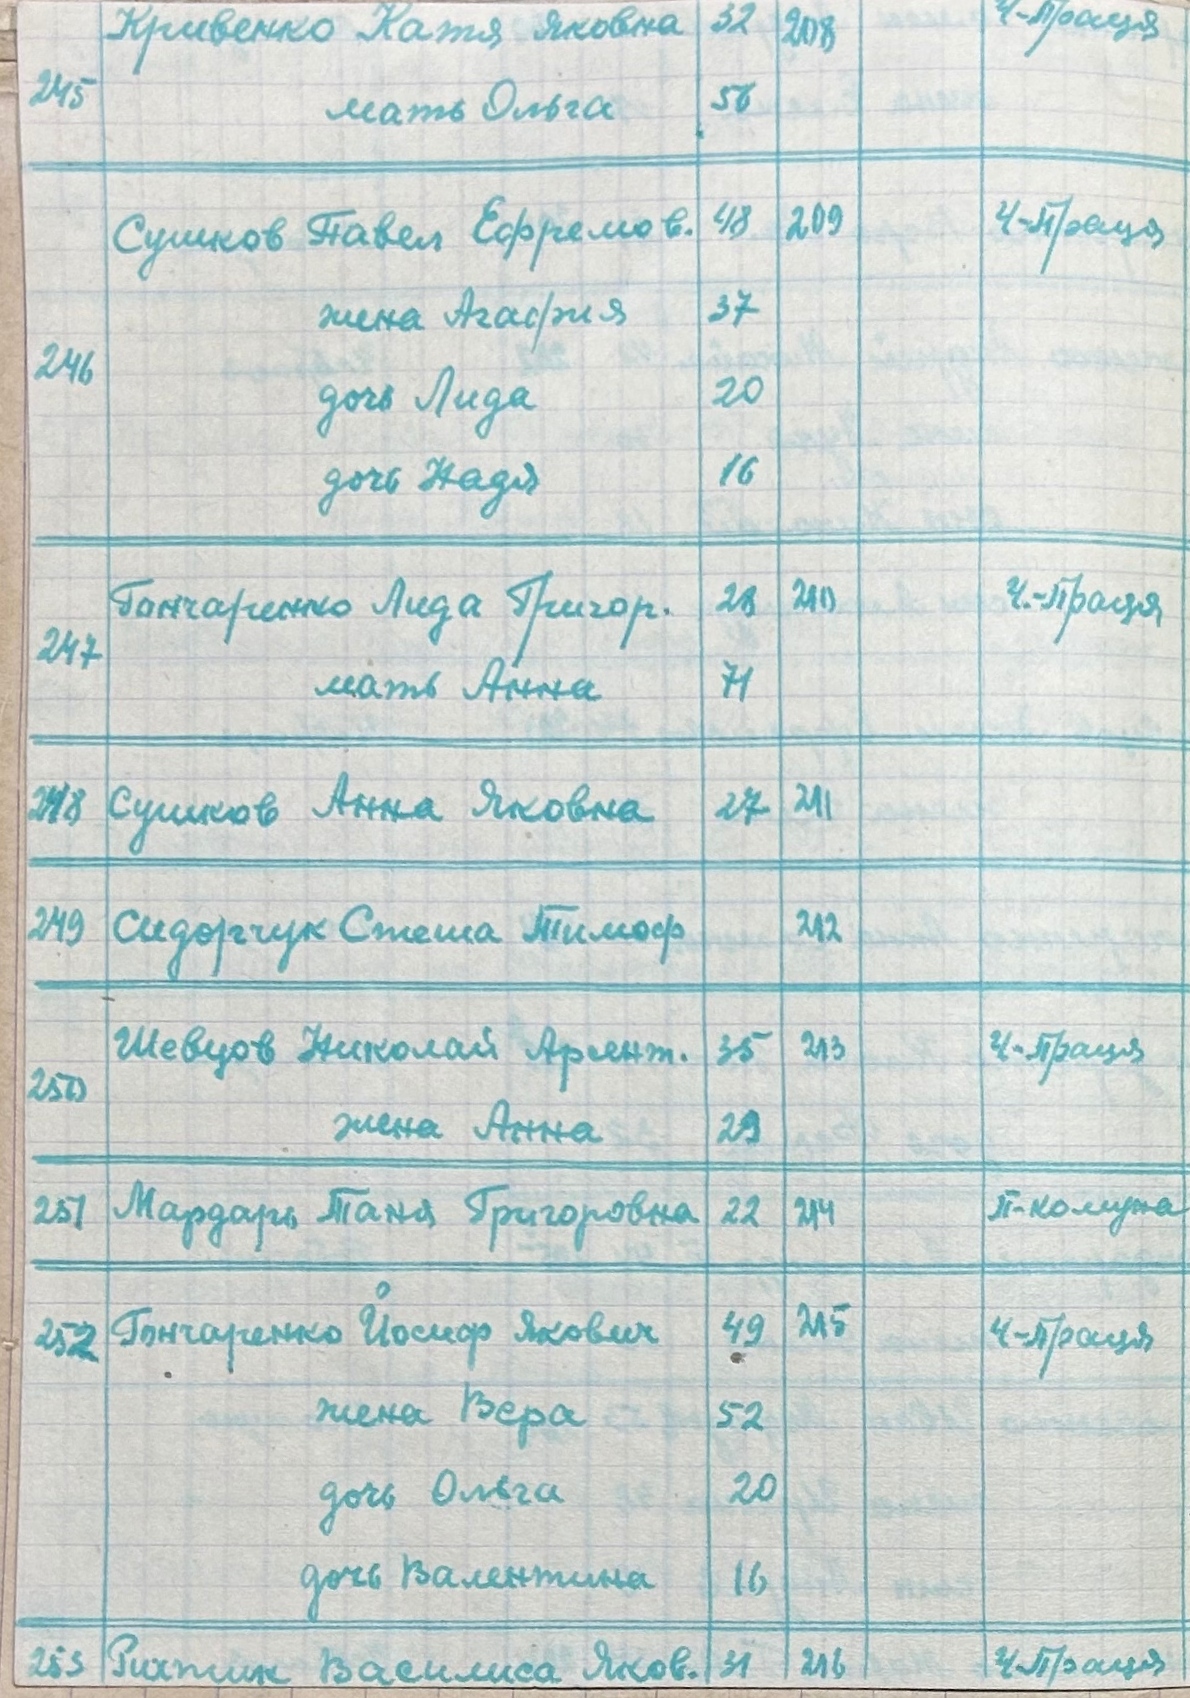 Кривенко Катя Яковна 32 208 Ч-Праця
245 мать Ольга 56
Сушков Павел Ефремов. 48 209 Ч-Праця
жена Агафия 37
246
дочь Лида 20
дочь Надя 16
Гончаренко Лида Григор. 28 210 Ч.-Праця
247
мать Анна 71
248 Сушков Анна Яковна 27 211
249 Сидорчук Стеша Тимоф 212
Шевцов Николай Арсент. 35 213 Ч-Праця
250
жена Анна 29
251 Мардарь Таня Григоровна 22 214 П-комуна
252 Гончаренко Йосиф Якович 49 215 Ч-Праця
жена Вера 52
дочь Ольга 20
дочь Валентина 16
253 Василиса Яков. 31 216 Ч-Праця